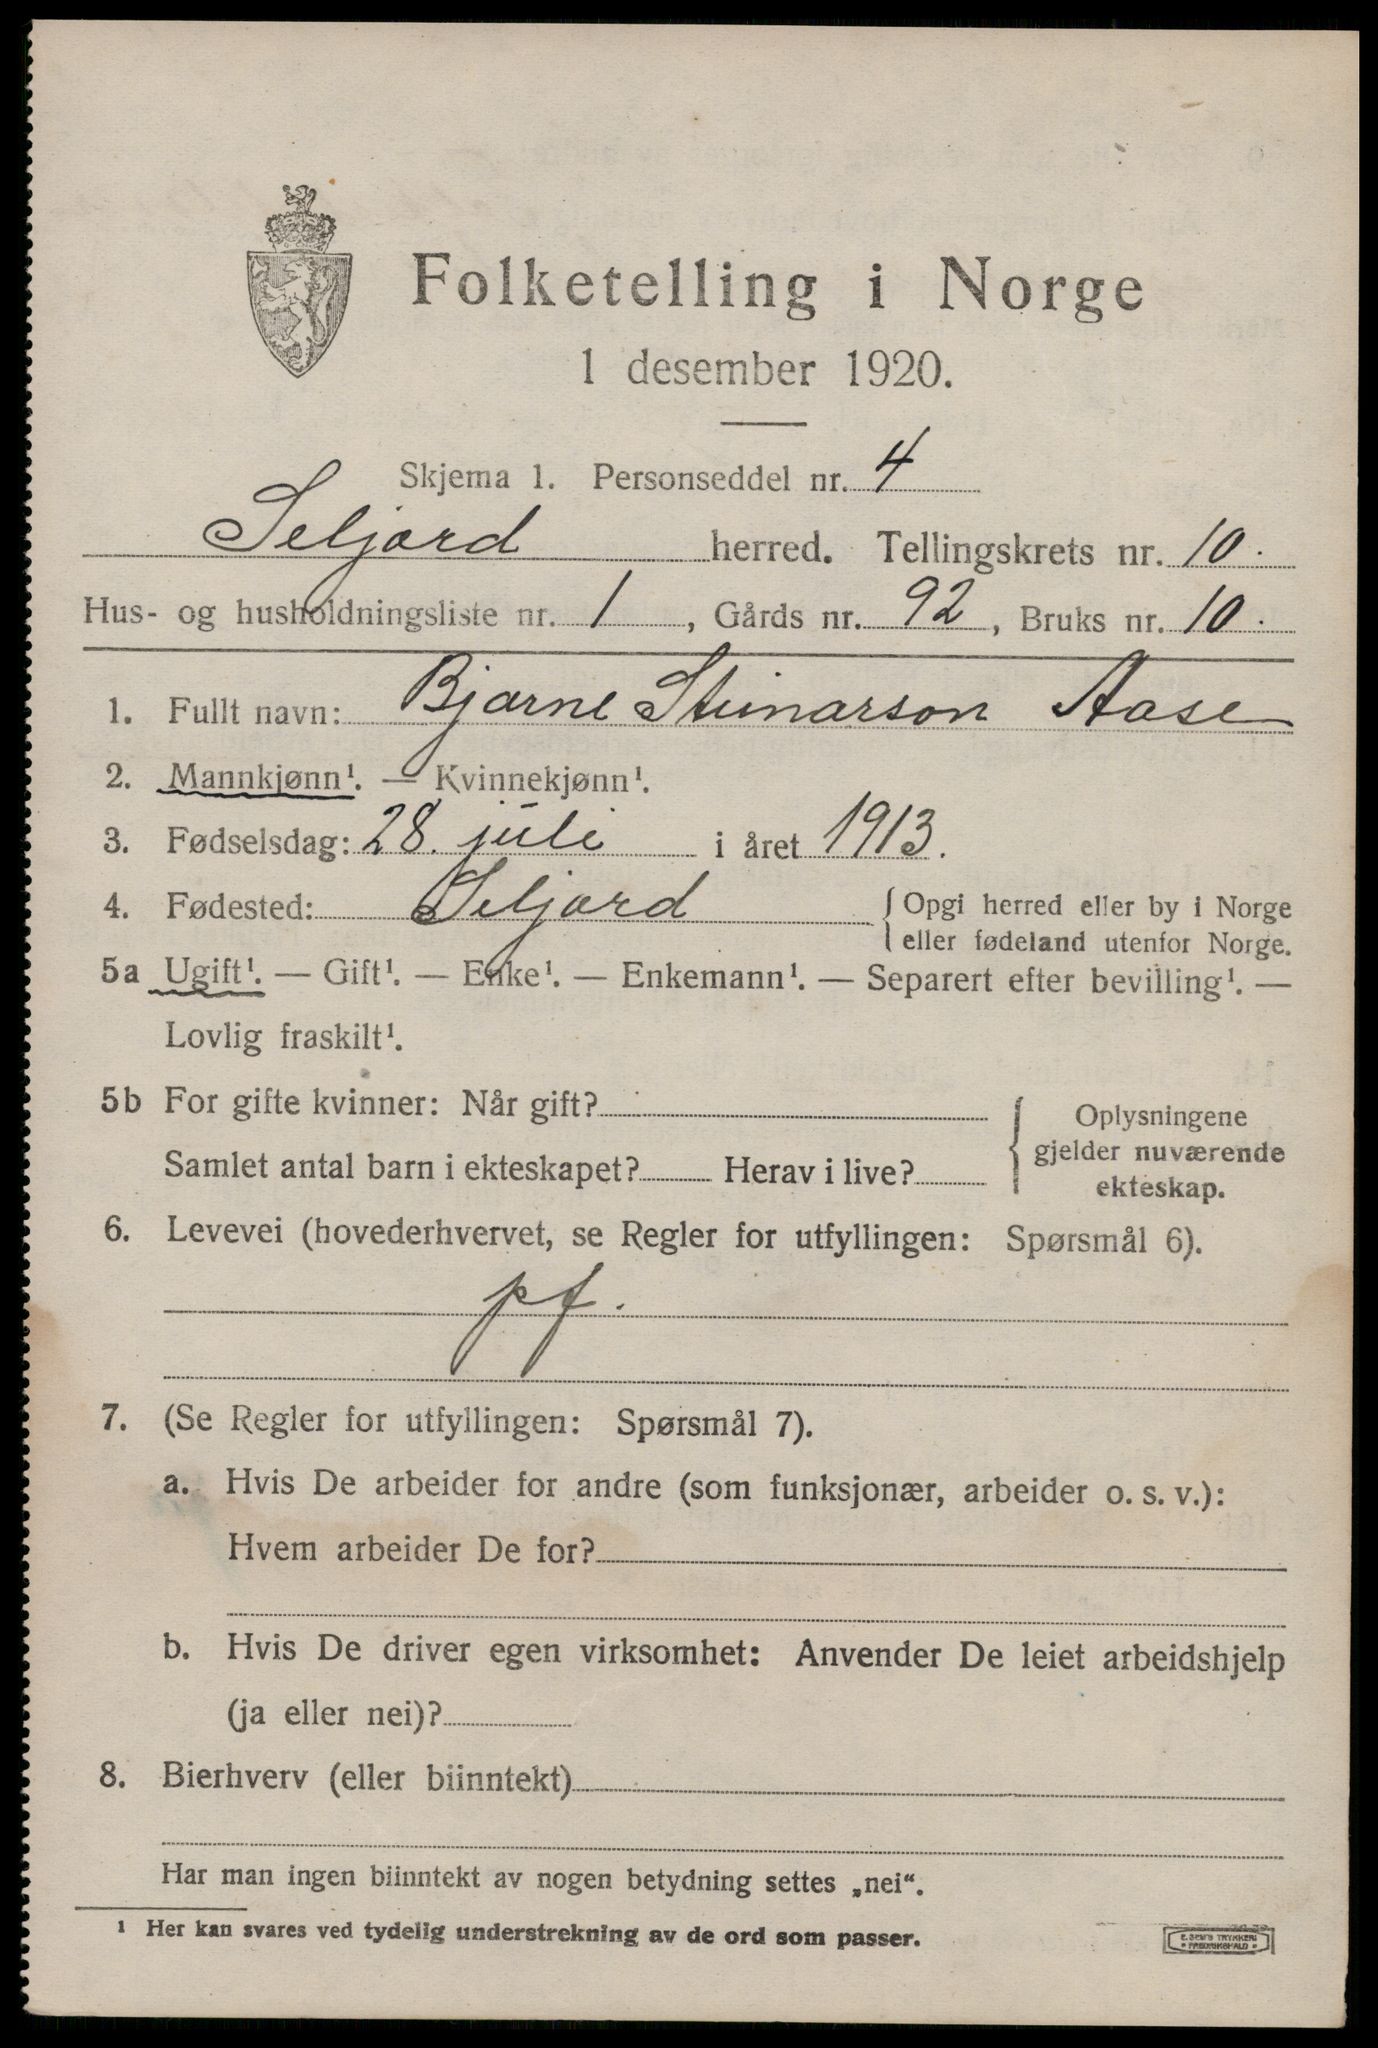 Folketelling i Norge
1 desember 1920.
Skjema 1. Personseddel nr. 4
Seljord herred. Tellingskrets nr. 10.
Hus- og husholdningsliste nr. 1, Gårds nr. 92, Bruks nr. 10.
1. Fullt navn: Bjarne Steinarson Aase
2. Mannkjønn¹. — Kvinnekjønn¹.
3. Fødselsdag: 28. juli i året 1913.
4. Fødested: Seljord { Opgi herred eller by i Norge
eller fødeland utenfor Norge.
5a Ugift¹. — Gift¹. — Enke¹. — Enkemann¹. — Separert efter bevilling¹. —
Lovlig fraskilt¹.
5b For gifte kvinner: Når gift?
Samlet antal barn i ekteskapet? Herav i live?
{ Oplysningene
gjelder nuværende
ekteskap.
6. Levevei (hovederhvervet, se Regler for utfyllingen: Spørsmål 6).
pf.
7. (Se Regler for utfyllingen: Spørsmål 7).
a. Hvis De arbeider for andre (som funksjonær, arbeider o. s. v.):
Hvem arbeider De for?
b. Hvis De driver egen virksomhet: Anvender De leiet arbeidshjelp
(ja eller nei)?
8. Bierhverv (eller biinntekt)
Har man ingen biinntekt av nogen betydning settes „nei“.
¹ Her kan svares ved tydelig understrekning av de ord som passer.
E. SEM'S TRYKKERI
• FREDRIKSHALD •